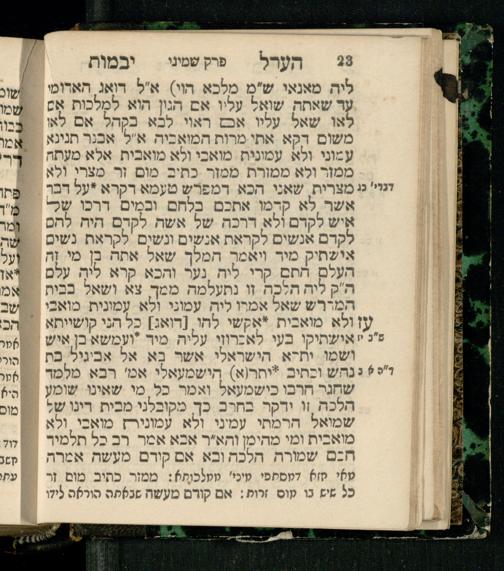 23 הערל פרק שמיני יבמות
ליה מאנאי ש"מ מלכא הוי) א"ל דואג האדומי
עד שאתה שואל עליו אם הגון הוא למלכות אם
לאו שאל עליו אם ראוי לבא בקהל אם לאו
משום דקא אתי מרות המואביה א"ל אבנר תנינא
עמוני ולא עמונית מואבי ולא מואבית אלא מעתה
ממזר ולא ממזרת ממזר כתיב מום זר מצרי ולא
מצרית שאני הכא דמפרש טעמא דקרא *על דבר
אשר לא קדמו אתכם בלחם ובמים דרכו של
איש לקדם ולא דרכה של אשה לקדם היה להם
לקדם אנשים לקראת אנשים ונשים לקראת נשים
אישתיק מיד ויאמר המלך שאל אתה בן מי זה
העלם התם קרי ליה נער והכא קרא ליה עלם
ה"ק ליה הלכה זו נתעלמה ממך צא ושאל בבית
המדרש שאל אמרו ליה עמוני ולא עמונית מואבי
ולא מואבית *אקשי להו [דואג] כל הני קושייתא
אישתיקו בעי לאכרוזי עליה מיד *ועמשא בן איש
ושמו יתרא הישראלי אשר בא אל אביגיל בת
נחש וכתיב *יתר(א) הישמעאלי אמ' רבא מלמד
שחגר חרבו כישמעאל ואמר כל מי שאינו שומע
הלכה זו ידקר בחרב כך מקובלני מבית דינו של
שמואל הרמתי עמוני ולא עמונית מואבי ולא
מואבית ומי מהימן והא"ר אבא אמר רב כל תלמיד
חכם שמורה הלכה ובא אם קודם מעשה אמרה
ממזר כתיב מום זר
כל שיש בו מום זרות: אם קודם מעשה שבאתה הוראה לידו
דברי' כג
עז
ש"ב יז
ד"ה א ב